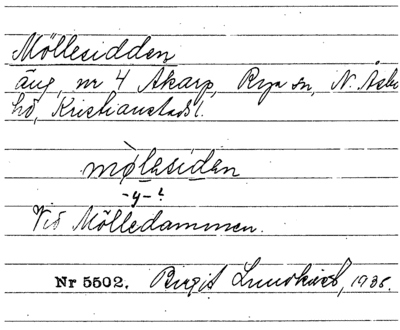 Möllesidden
äng, nr 4 Åkarp, Rya sn, N. Åsbo
hd, Kristianstads l.
mølesiden
-y-?
Vid Mölledammen.
Nr 5502. Birgit Lundkvist, 1935.